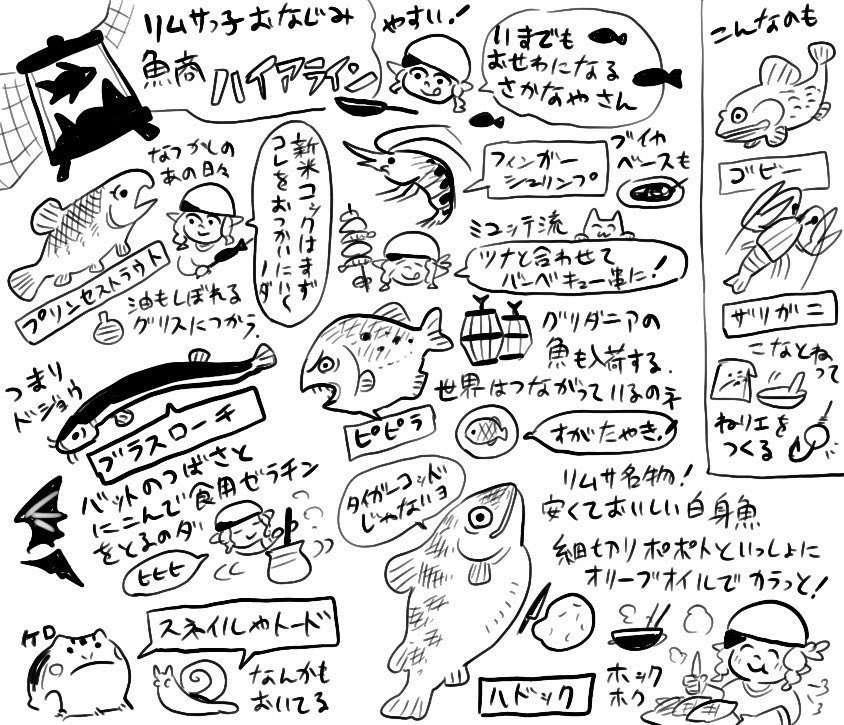 リムサっ子おなじみ
魚商ハイアライン
やすい！
いまでも
おせわになる
さかなやさん
こんなのも
ゴビー
ザリガニ
こなとねって
ねりエを
つくる
なつかしの
あの日々
新米コックはまず
コレをおつかいにいく
ノダ
プリンセストラウト
油もしぼれる
グリスにつかう。
フィンガー
シュリンプ
ブイヤ
ベースも
ミコッテ流
ツナと合わせて
バーベキュー串に！
グリダニアの
魚も入荷する。
世界はつながっているのネ
ピピラ
すがたやき！
つまり
ドジョウ
ブラスローチ
バットのつばさと
にこんで食用ゼラチン
をとるのダ
ヒヒヒ
ケロ
スネイルやトード
なんかも
おいてる
タイガーコッド
じゃないヨ
リムサ名物！
安くておいしい白身魚
細切りポポトといっしょに
オリーブオイルでカラっと！
ハドック
ホック
ホク